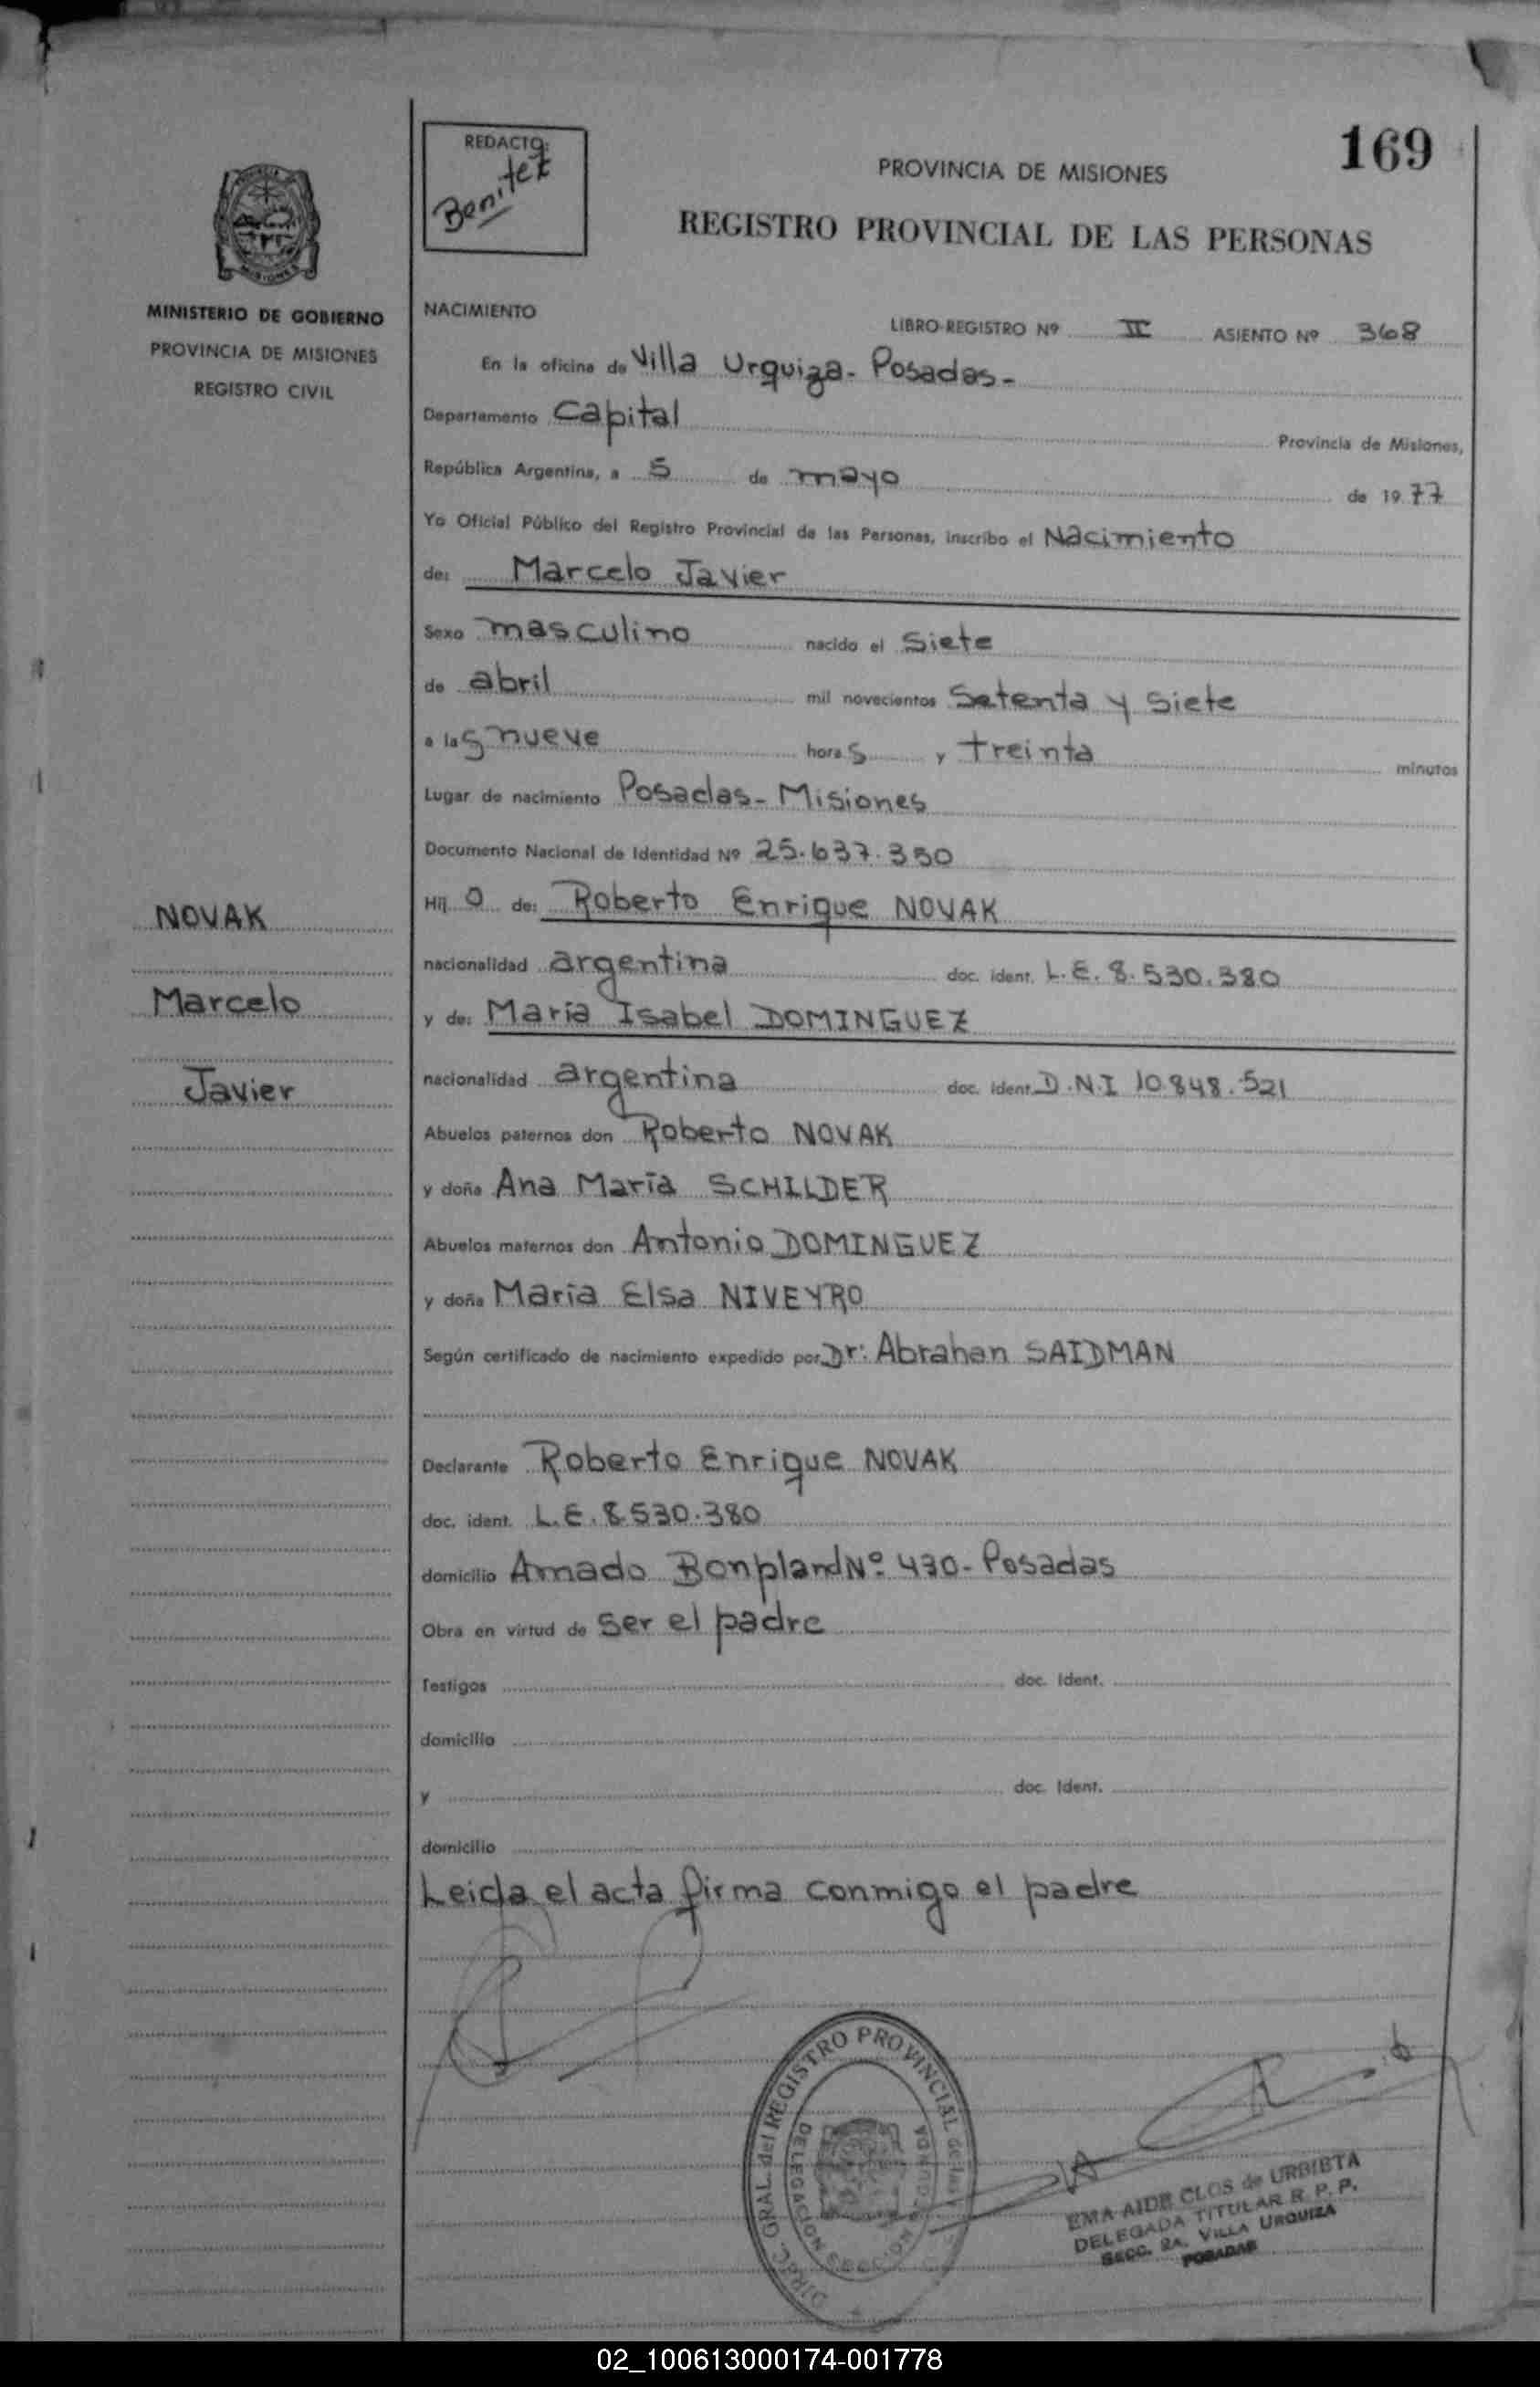 169
REDACTO:
Benitez
PROVINCIA DE MISIONES
REGISTRO PROVINCIAL DE LAS PERSONAS
MISIONES
MINISTERIO DE GOBIERNO
PROVINCIA DE MISIONES
REGISTRO CIVIL
NACIMIENTO
LIBRO-REGISTRO Nº II ASIENTO Nº 368
En la oficina de Villa Urquiza - Posadas -
Departamento Capital Provincia de Misiones,
República Argentina, a 5 de mayo de 1977
Yo Oficial Público del Registro Provincial de las Personas, inscribo el Nacimiento
de: Marcelo Javier
Sexo masculino nacido el Siete
de abril mil novecientos Setenta y Siete
a las nueve horas y treinta minutos
Lugar de nacimiento Posadas - Misiones
Documento Nacional de Identidad Nº 25.637.350
Hijo de: Roberto Enrique NOVAK
nacionalidad argentina doc. ident. L.E. 8.530.380
y de: María Isabel DOMINGUEZ
nacionalidad argentina doc. ident. D.N.I 10.848.521
Abuelos paternos don Roberto NOVAK
y doña Ana María SCHILDER
Abuelos maternos don Antonio DOMINGUEZ
y doña María Elsa NIVEYRO
Según certificado de nacimiento expedido por Dr: Abrahan SAIDMAN
Declarante Roberto Enrique NOVAK
doc. ident. L.E. 8.530.380
domicilio Amado Bonpland Nº 430 - Posadas
Obra en virtud de Ser el padre
Testigos doc. Ident.
domicilio
y doc. Ident.
domicilio
Leida el acta firma conmigo el padre
NOVAK
Marcelo
Javier
DIREC. GRAL. del REGISTRO PROVINCIAL de las
DELEGACION SECCION SEGUNDA
EMA AIDE CLOS de URBIETA
DELEGADA TITULAR R. P. P.
SECC. 2A. VILLA URQUIZA
POSADAS
02_100613000174-001778